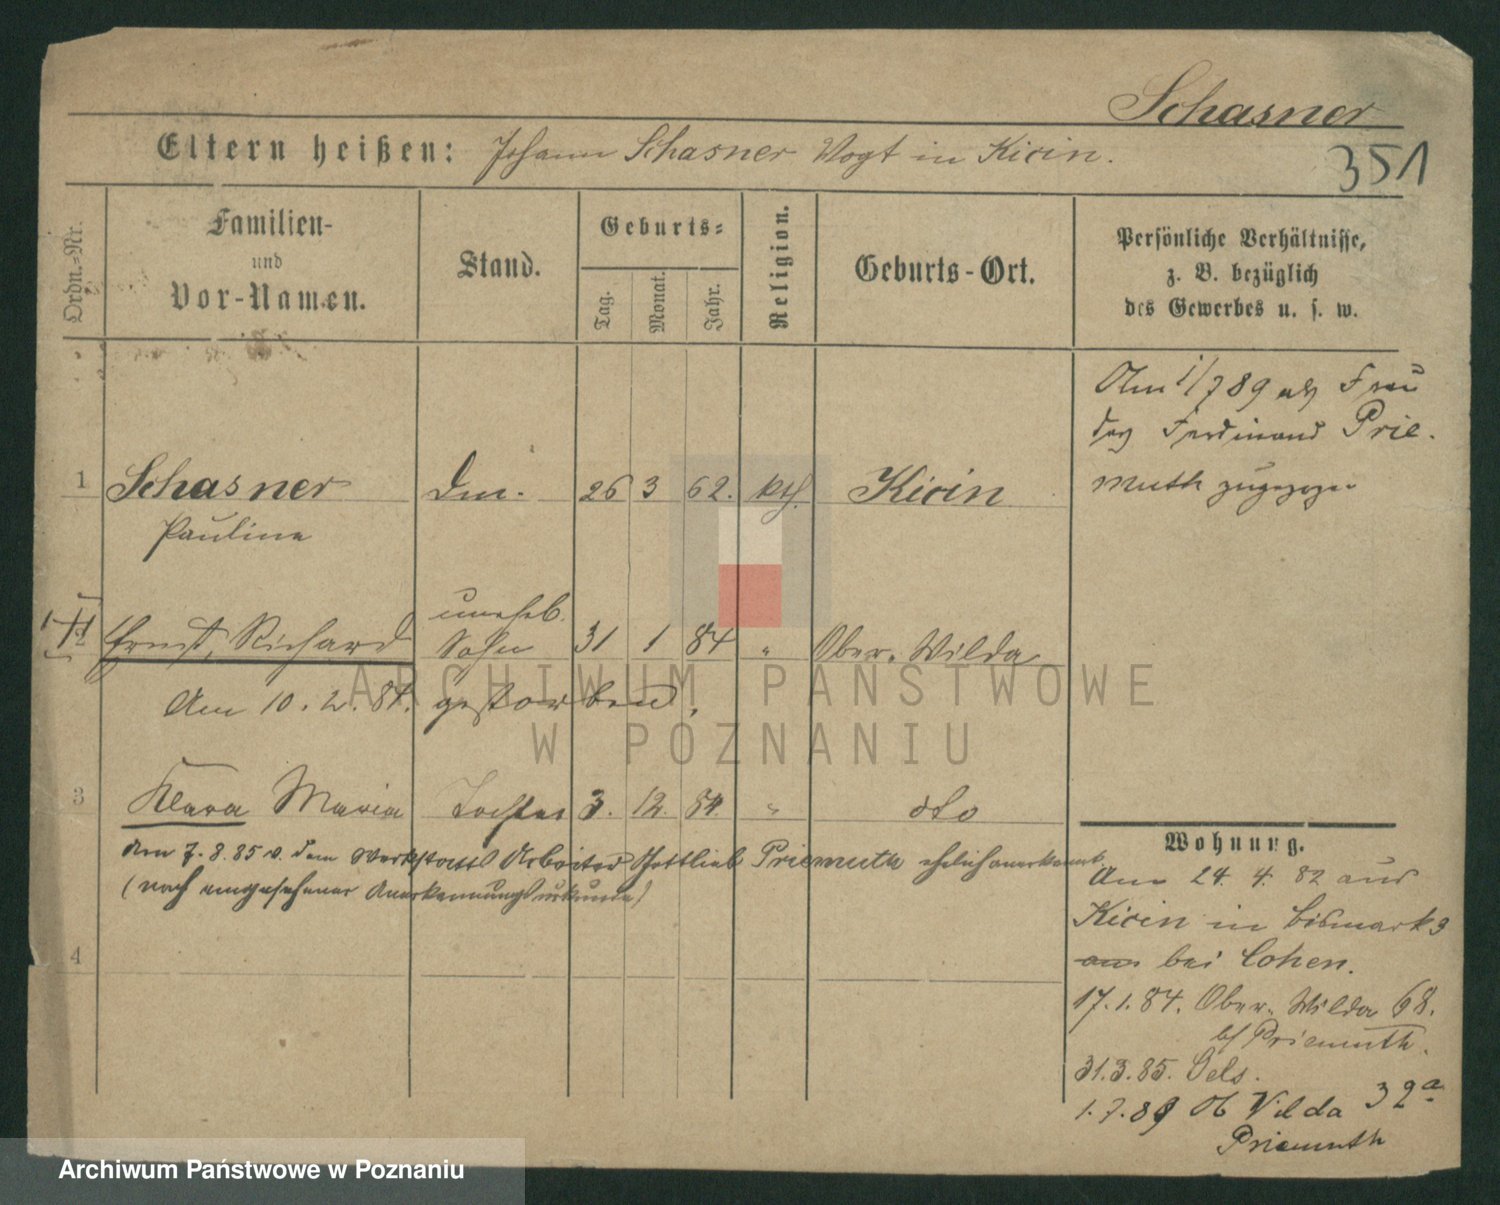 Schasner
Eltern heißen: Johann Schasner Vogt in Kicin.
351
Ordn.-Nr.
Familien-
und
Vor-Namen.
Stand.
Geburts-
Tag.
Monat.
Jahr.
Religion.
Geburts-Ort.
Persönliche Verhältnisse,
z. B. bezüglich
des Gewerbes u. s. w.
Am 1/7 89 als Frau
des Ferdinand Prie-
muth zugezogen
1 Schasner Dm. 26 3 62. kth. Kicin
Pauline
unehel.
2 Ernst, Richard Sohn 31 1 84 " Ober-Wilda
Am 10.2.84. gestorben.
3 Klara Maria Tochter 3. 12. 84. " dto
den 7.8.85 v. dem Werkstatt Arbeiter Gottlieb Priemuth ehelich anerkannt.
(nach eingesehener Anerkennungsurkunde)
4
Wohnung.
Am 24. 4. 82 aus
Kicin in Bismarks
bei Cohen.
17.1.84. Ober-Wilda 68.
bf Priemuth.
31.3.85. Oels.
1.7.89 Ob Vilda 32a
Priemuth
ARCHIWUM PAŃSTWOWE
W POZNANIU
Archiwum Państwowe w Poznaniu